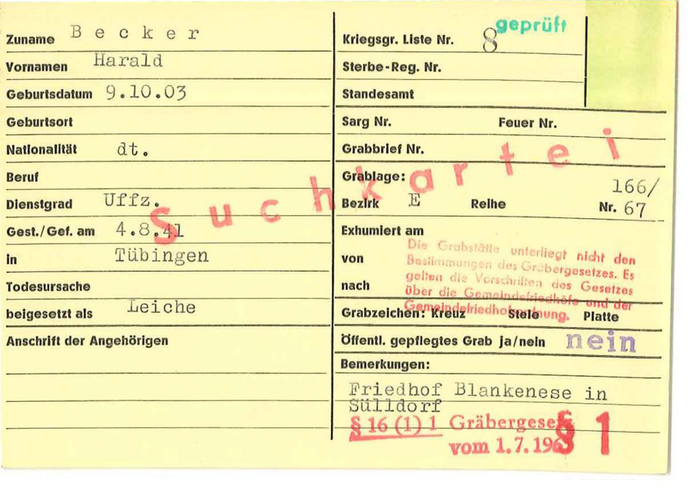 Zuname Becker
Vornamen Harald
Geburtsdatum 9.10.03
Geburtsort
Nationalität dt.
Beruf
Dienstgrad Uffz.
Gest./Gef. am 4.8.41
in Tübingen
Todesursache
beigesetzt als Leiche
Anschrift der Angehörigen
geprüft
Kriegsgr. Liste Nr. 8
Sterbe-Reg. Nr.
Standesamt
Sarg Nr. Feuer Nr.
Grabbrief Nr.
Grablage:
Bezirk E Reihe Nr. 166/67
Suchkartei
Exhumiert am
von
nach
Die Grabstätte unterliegt nicht den
Bestimmungen des Gräbergesetzes. Es
gelten die Vorschriften des Gesetzes
über die Gemeindefriedhöfe und der
Gemeindefriedhofsordnung.
Grabzeichen: Kreuz Stele Platte
Öffentl. gepflegtes Grab ja/nein nein
Bemerkungen:
Friedhof Blankenese in
Sülldorf
§ 16 (1) 1 Gräbergesetz
vom 1.7.196
§ 1